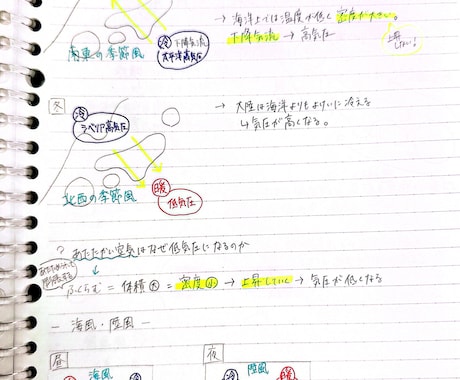 → 海洋上では温度が低く密度が大きい。
冷 下降気流
太平洋高気圧
下降気流 → 高気圧
上昇しにくい!
南東の季節風
冬
→ 大陸は海洋よりもよけいに冷える
↳ 気圧が高くなる。
冷
シベリア高気圧
暖
低気圧
北西の季節風
? あたたかい空気はなぜ低気圧になるのか
あたたまって
膨張する
ふくらむ = 体積大 = 密度小 → 上昇していく → 気圧が低くなる
― 海風・陸風 ―
昼
海風
夜
陸風
冷
暖